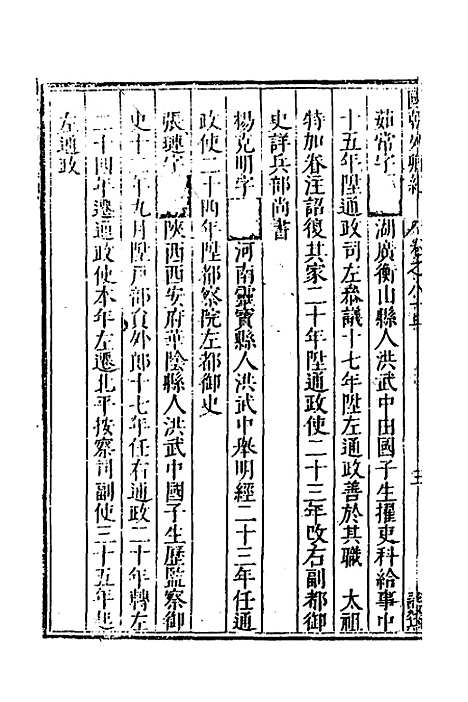 國朝列卿紀 卷之八十五 三
茹常字 湖廣衡山縣人洪武中由國子生擢吏科給事中
十五年陞通政司左叅議十七年陞左通政善於其職 太祖
特加眷注詔復其家二十年陞通政使二十三年改右副都御
史詳兵部尚書
楊克明字 河南靈寶縣人洪武中舉明經二十三年任通
政使二十四年陞都察院左都御史
張璉字 陝西西安府華陰縣人洪武中國子生歷監察御
史十二年九月陞戸部員外郎十七年任右通政二十年轉左
二十四年遷通政使本年左遷北平按察司副使三十五年起
左通政